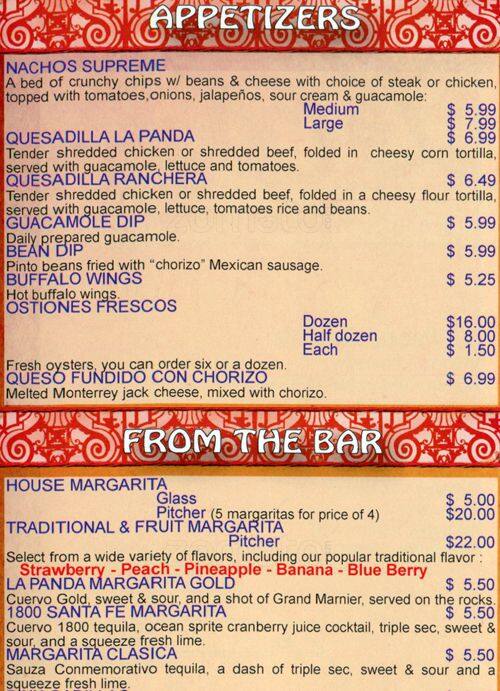 APPETIZERS
NACHOS SUPREME
A bed of crunchy chips w/ beans & cheese with choice of steak or chicken,
topped with tomatoes,onions, jalapeños, sour cream & guacamole:
Medium $ 5.99
Large $ 7.99
QUESADILLA LA PANDA $ 6.99
Tender shredded chicken or shredded beef, folded in cheesy corn tortilla,
served with guacamole, lettuce and tomatoes.
QUESADILLA RANCHERA $ 6.49
Tender shredded chicken or shredded beef, folded in a cheesy flour tortilla,
served with guacamole, lettuce, tomatoes rice and beans.
GUACAMOLE DIP $ 5.99
Daily prepared guacamole.
BEAN DIP $ 5.99
Pinto beans fried with “chorizo” Mexican sausage.
BUFFALO WINGS $ 5.25
Hot buffalo wings.
OSTIONES FRESCOS
Dozen $16.00
Half dozen $ 8.00
Each $ 1.50
Fresh oysters, you can order six or a dozen.
QUESO FUNDIDO CON CHORIZO $ 6.99
Melted Monterrey jack cheese, mixed with chorizo.
FROM THE BAR
HOUSE MARGARITA
Glass $ 5.00
Pitcher (5 margaritas for price of 4) $20.00
TRADITIONAL & FRUIT MARGARITA
Pitcher $22.00
Select from a wide variety of flavors, including our popular traditional flavor :
Strawberry - Peach - Pineapple - Banana - Blue Berry
LA PANDA MARGARITA GOLD $ 5.50
Cuervo Gold, sweet & sour, and a shot of Grand Marnier, served on the rocks.
1800 SANTA FE MARGARITA $ 5.50
Cuervo 1800 tequila, ocean sprite cranberry juice cocktail, triple sec, sweet &
sour, and a squeeze fresh lime.
MARGARITA CLASICA $ 5.50
Sauza Conmemorativo tequila, a dash of triple sec, sweet & sour and a
squeeze fresh lime.